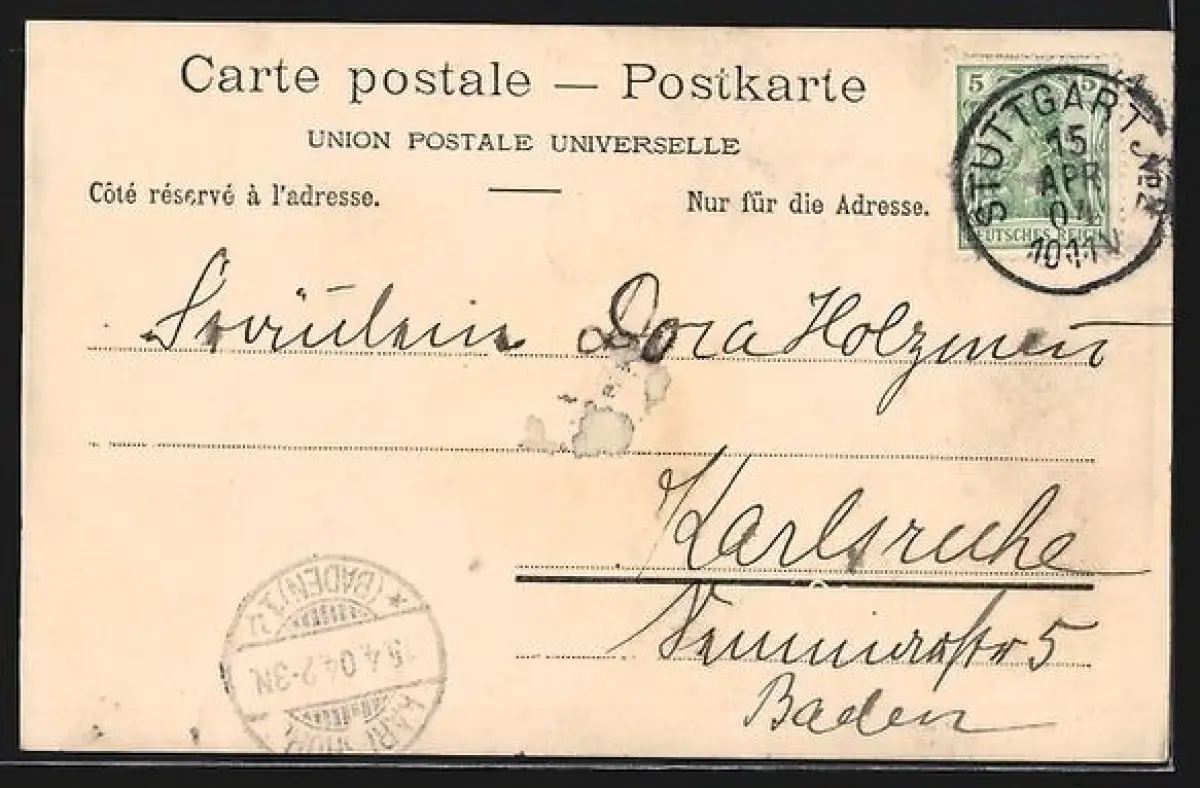 Carte postale — Postkarte
UNION POSTALE UNIVERSELLE
Côté réservé à l'adresse.
Nur für die Adresse.
5 5
DEUTSCHES REICH
STUTTGART No 2
15
APR
04
10-11V
Fräulein Dora Holzmen
Karlsruhe
5
Baden
(BADEN)
15.4.04.2-3N.
KARLSRUHE